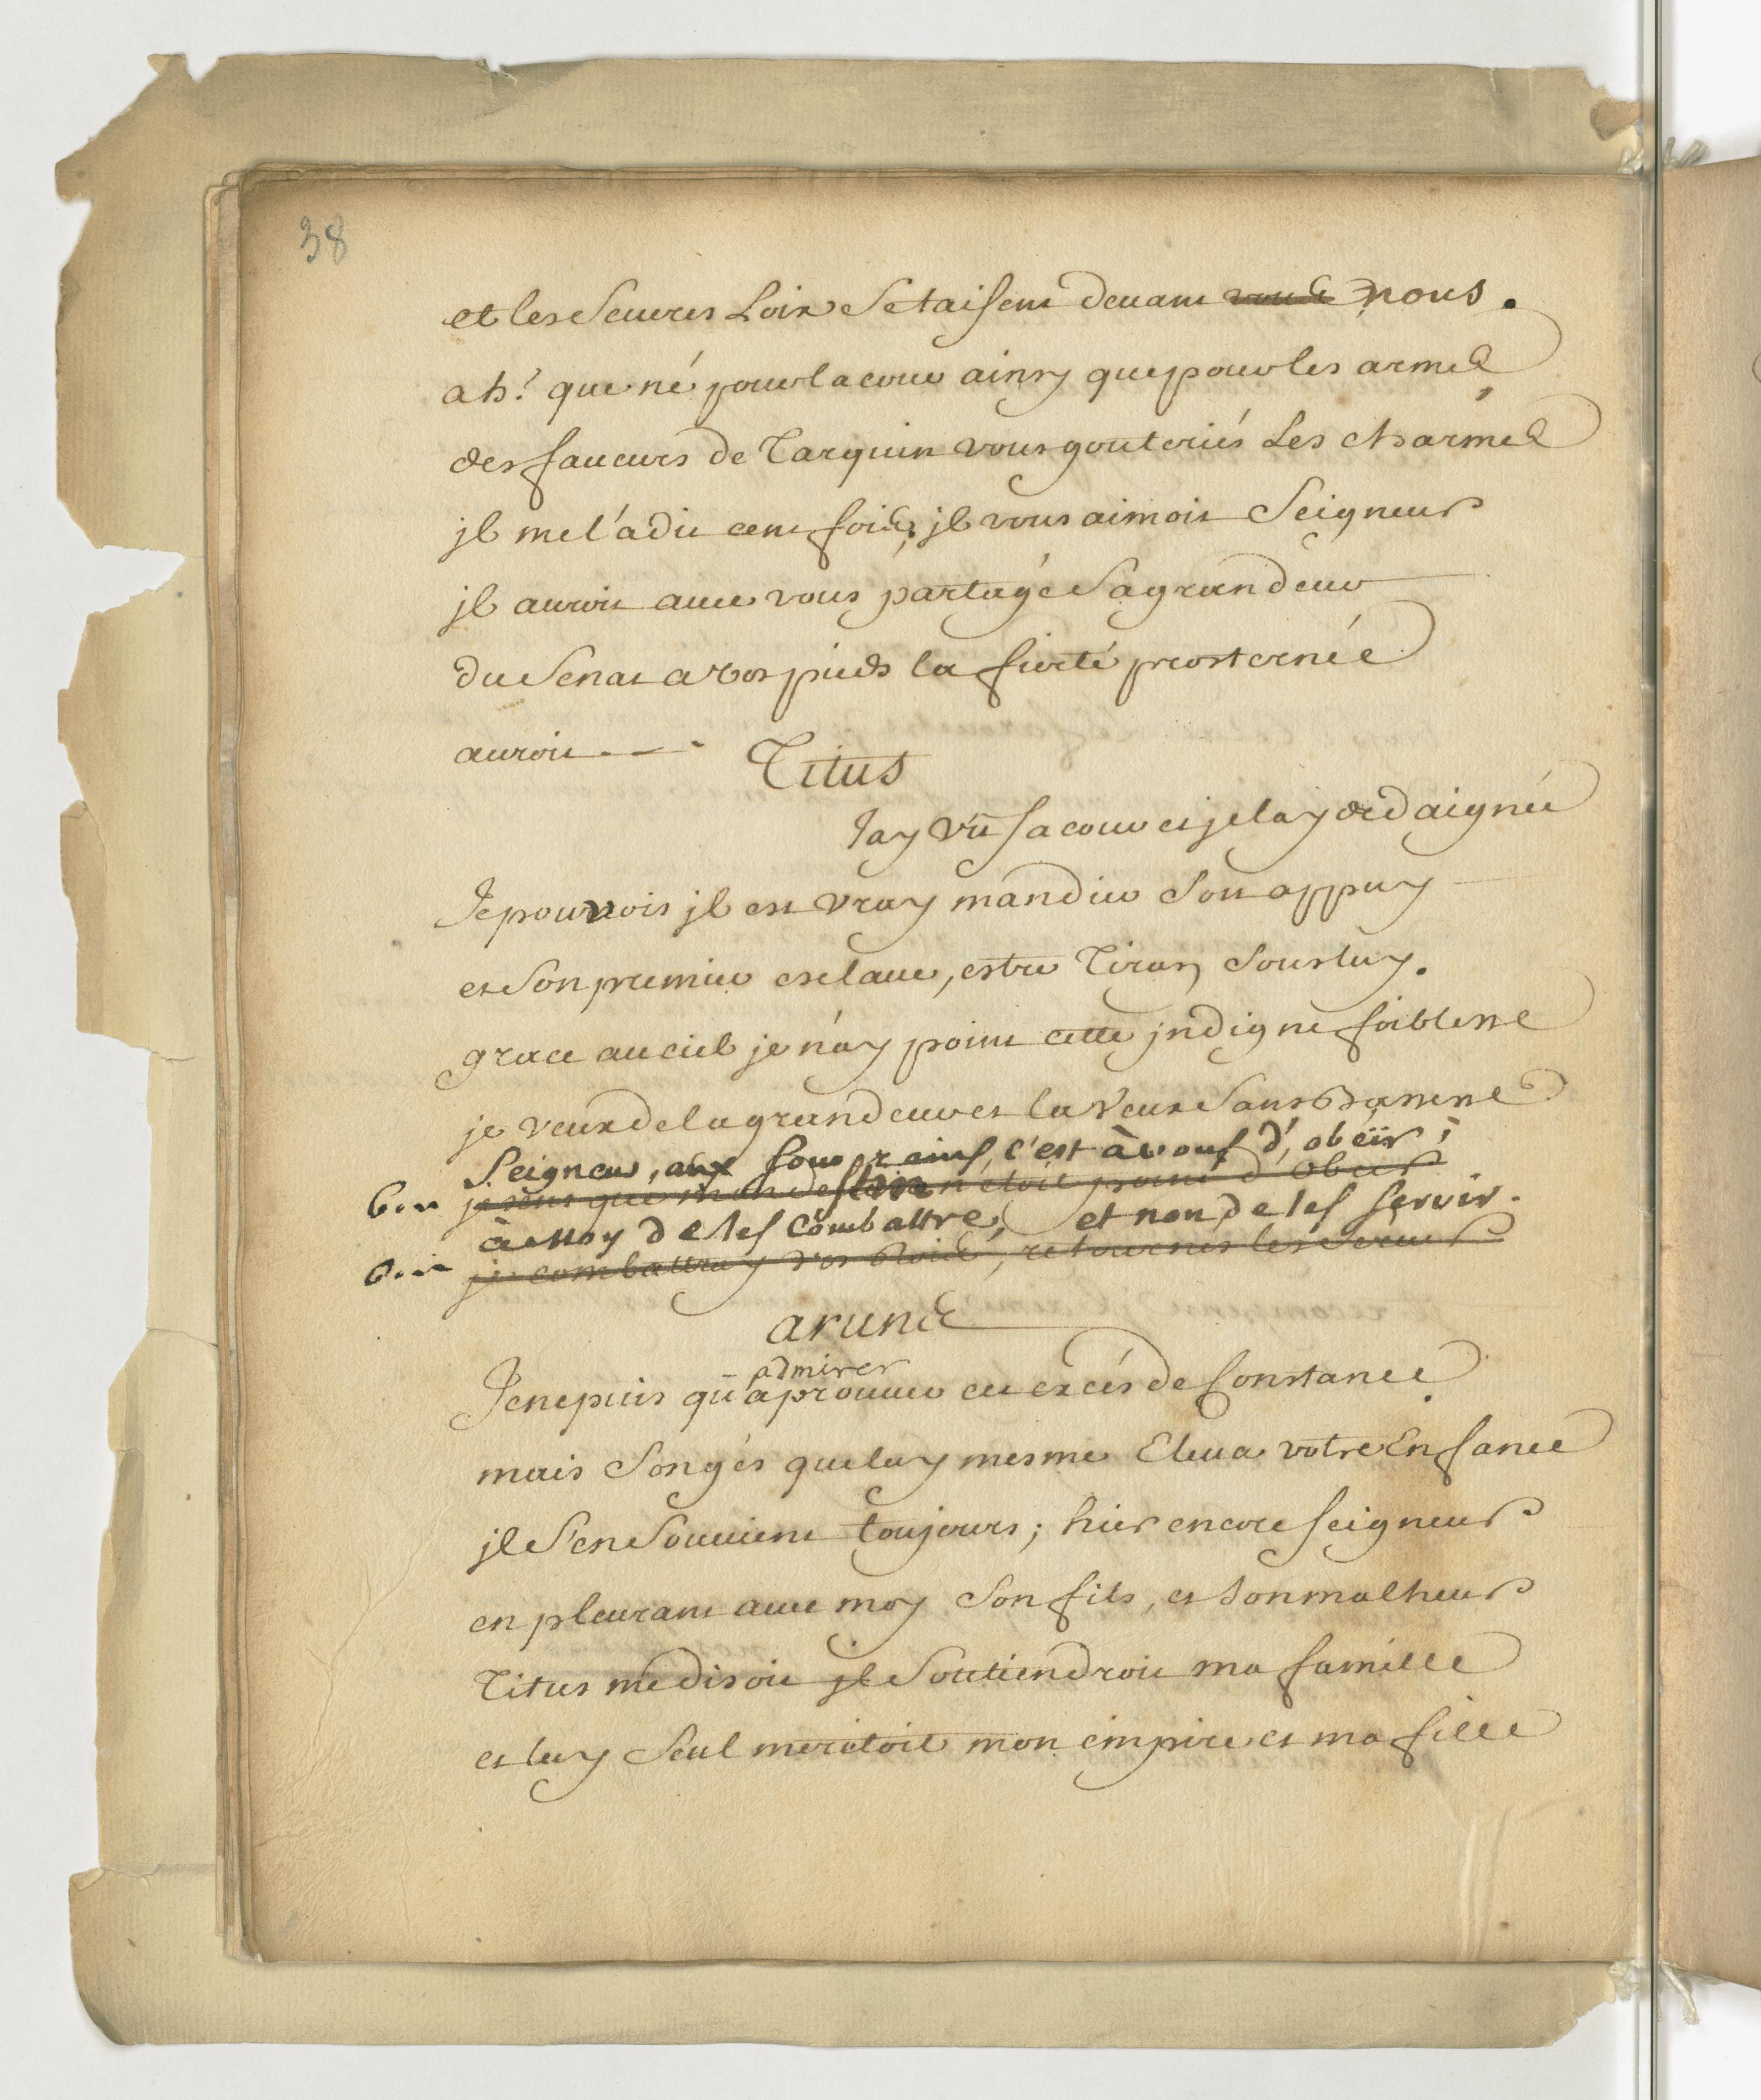 38
et les Seueres Loix Se taisent deuant vous nous.
ah! que né pour la cour ainsy que pour les armes
des faueurs de Tarquin vous gouteriés Les charmes
jl me l'a dit cent fois, jl vous aimoit Seigneur
jl auroit auec vous partagé Sa grandeur
du Senat a vos pieds la fierté prosternée
auroit ---
Titus
Jay vû sa cour et je lay dedaignée
Je pourrois jl est vray mandier Son appuy
et Son premier esclaue, estre Tiran Sous luy.
grace au ciel je n'ay point cette jndigne foiblesse
je veux de la grandeur et la Veux Sans Bassesse
Seigneur, aux souverains, c'est à vous d'obéïr;
bon je sens que mon destin n'étoit point d'obeir
à moy de les combattre, et non de les servir.
bon je combattray vos Rois, retournés les Servir
aruns
admirer
Je ne puis qu'aprouuer cet excés de Constance
mais Songés que luy mesme Eleua votre Enfance
jl S'en Souuient toujours; hier encore seigneur
en pleurant auec moy Son fils, et Son malheur
Titus me disoit jl Soutiendroit ma famille
et luy Seul meritoit mon empire et ma fille